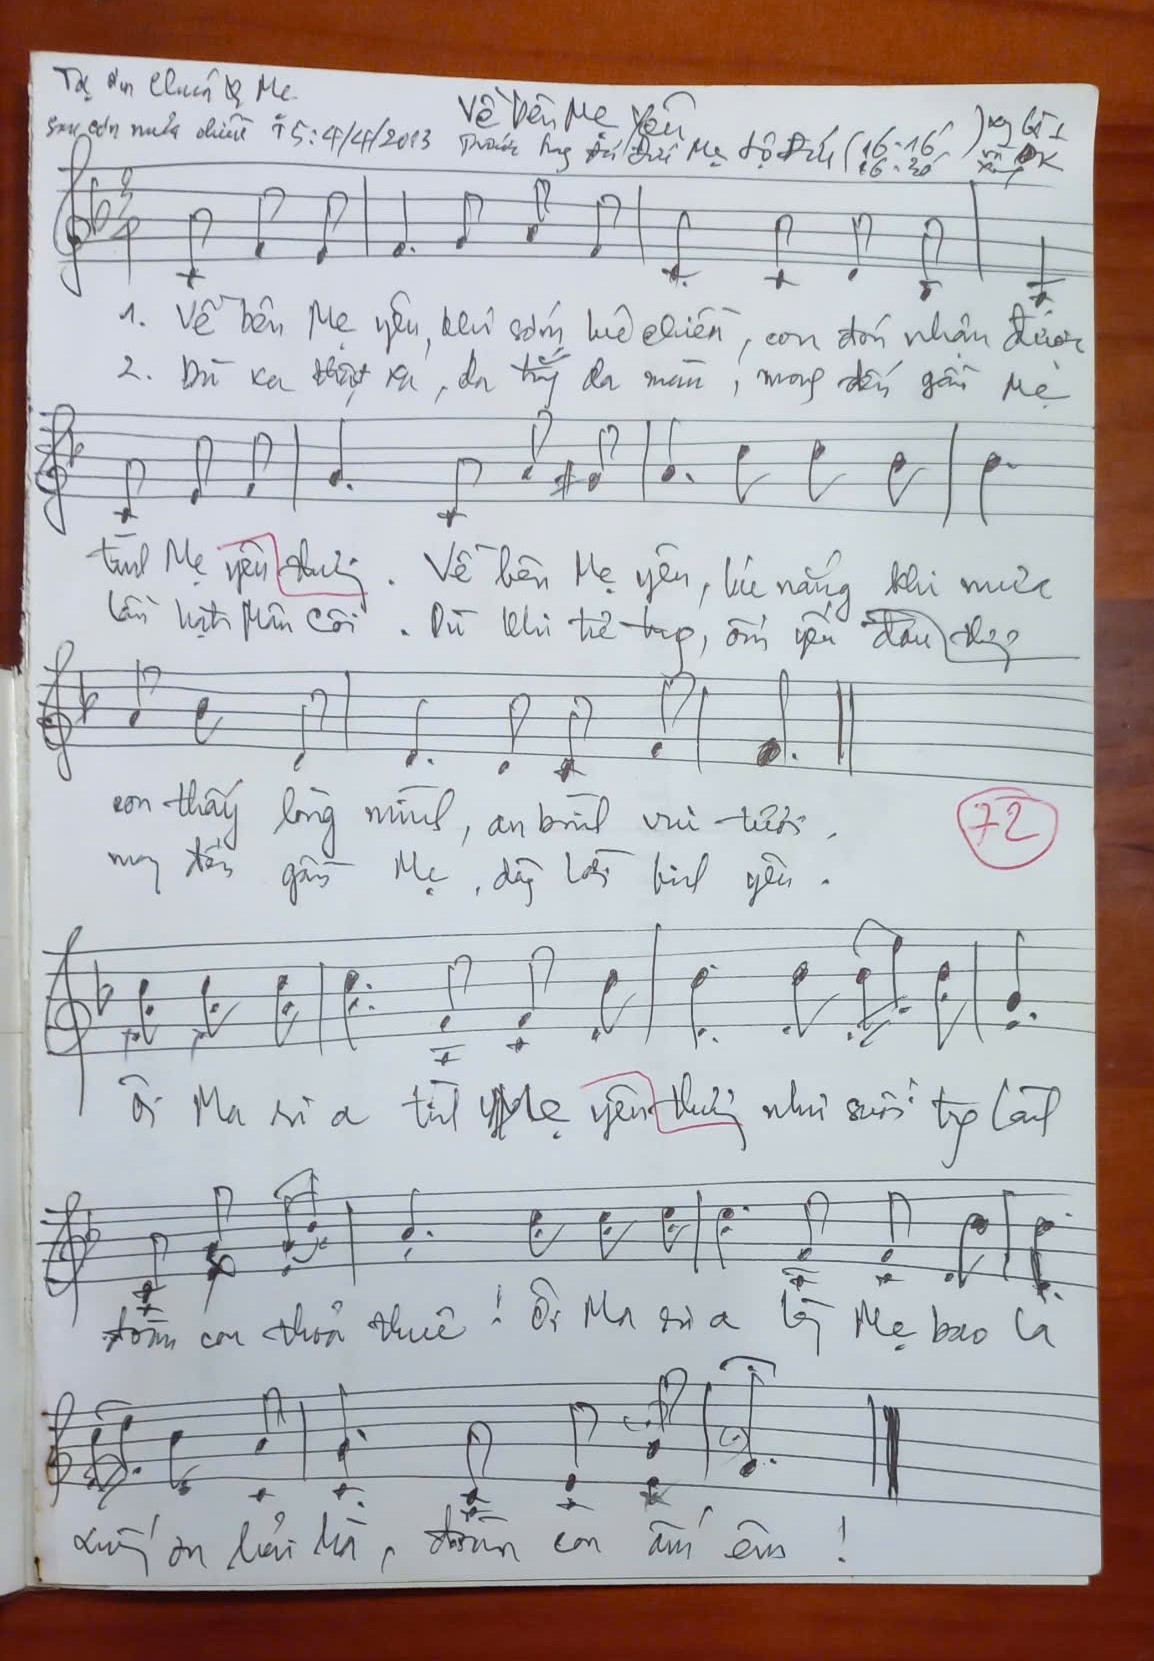 Tạ ơn Chúa & Mẹ
Về bên Mẹ yêu
sau cơn mưa chiều T5: 4/4/2013
Trước Đài Mẹ Lộ Đức (16-16
16-30
)
1. Về bên Mẹ yêu, khi sớm chiều, con đón nhận được
2. Dù xa thật xa, da trắng da màu, mong đến gần Mẹ
tình Mẹ yêu thương. Về bên Mẹ yêu, lúc nắng khi mưa
lần hạt Mân Côi. Dù khi trẻ trung, ốm yếu đau thương
con thấy lòng mình, an bình vui tươi.
72
mong đến gần Mẹ, đây bình yên.
Ôi Ma ri a tình Mẹ yêu thương như suối trong lành
đoàn con thỏa thuê! Ôi Ma ri a lòng Mẹ bao la
xuống ơn hải hà, đoàn con ấm êm!